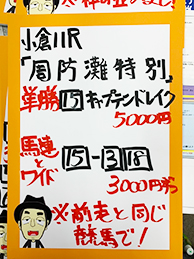 小倉11R
「周防灘特別」
単勝15キャプテンドレイク
5000円
馬連とワイド
15-13 18
3000円券
※前走と同じ
競馬で!